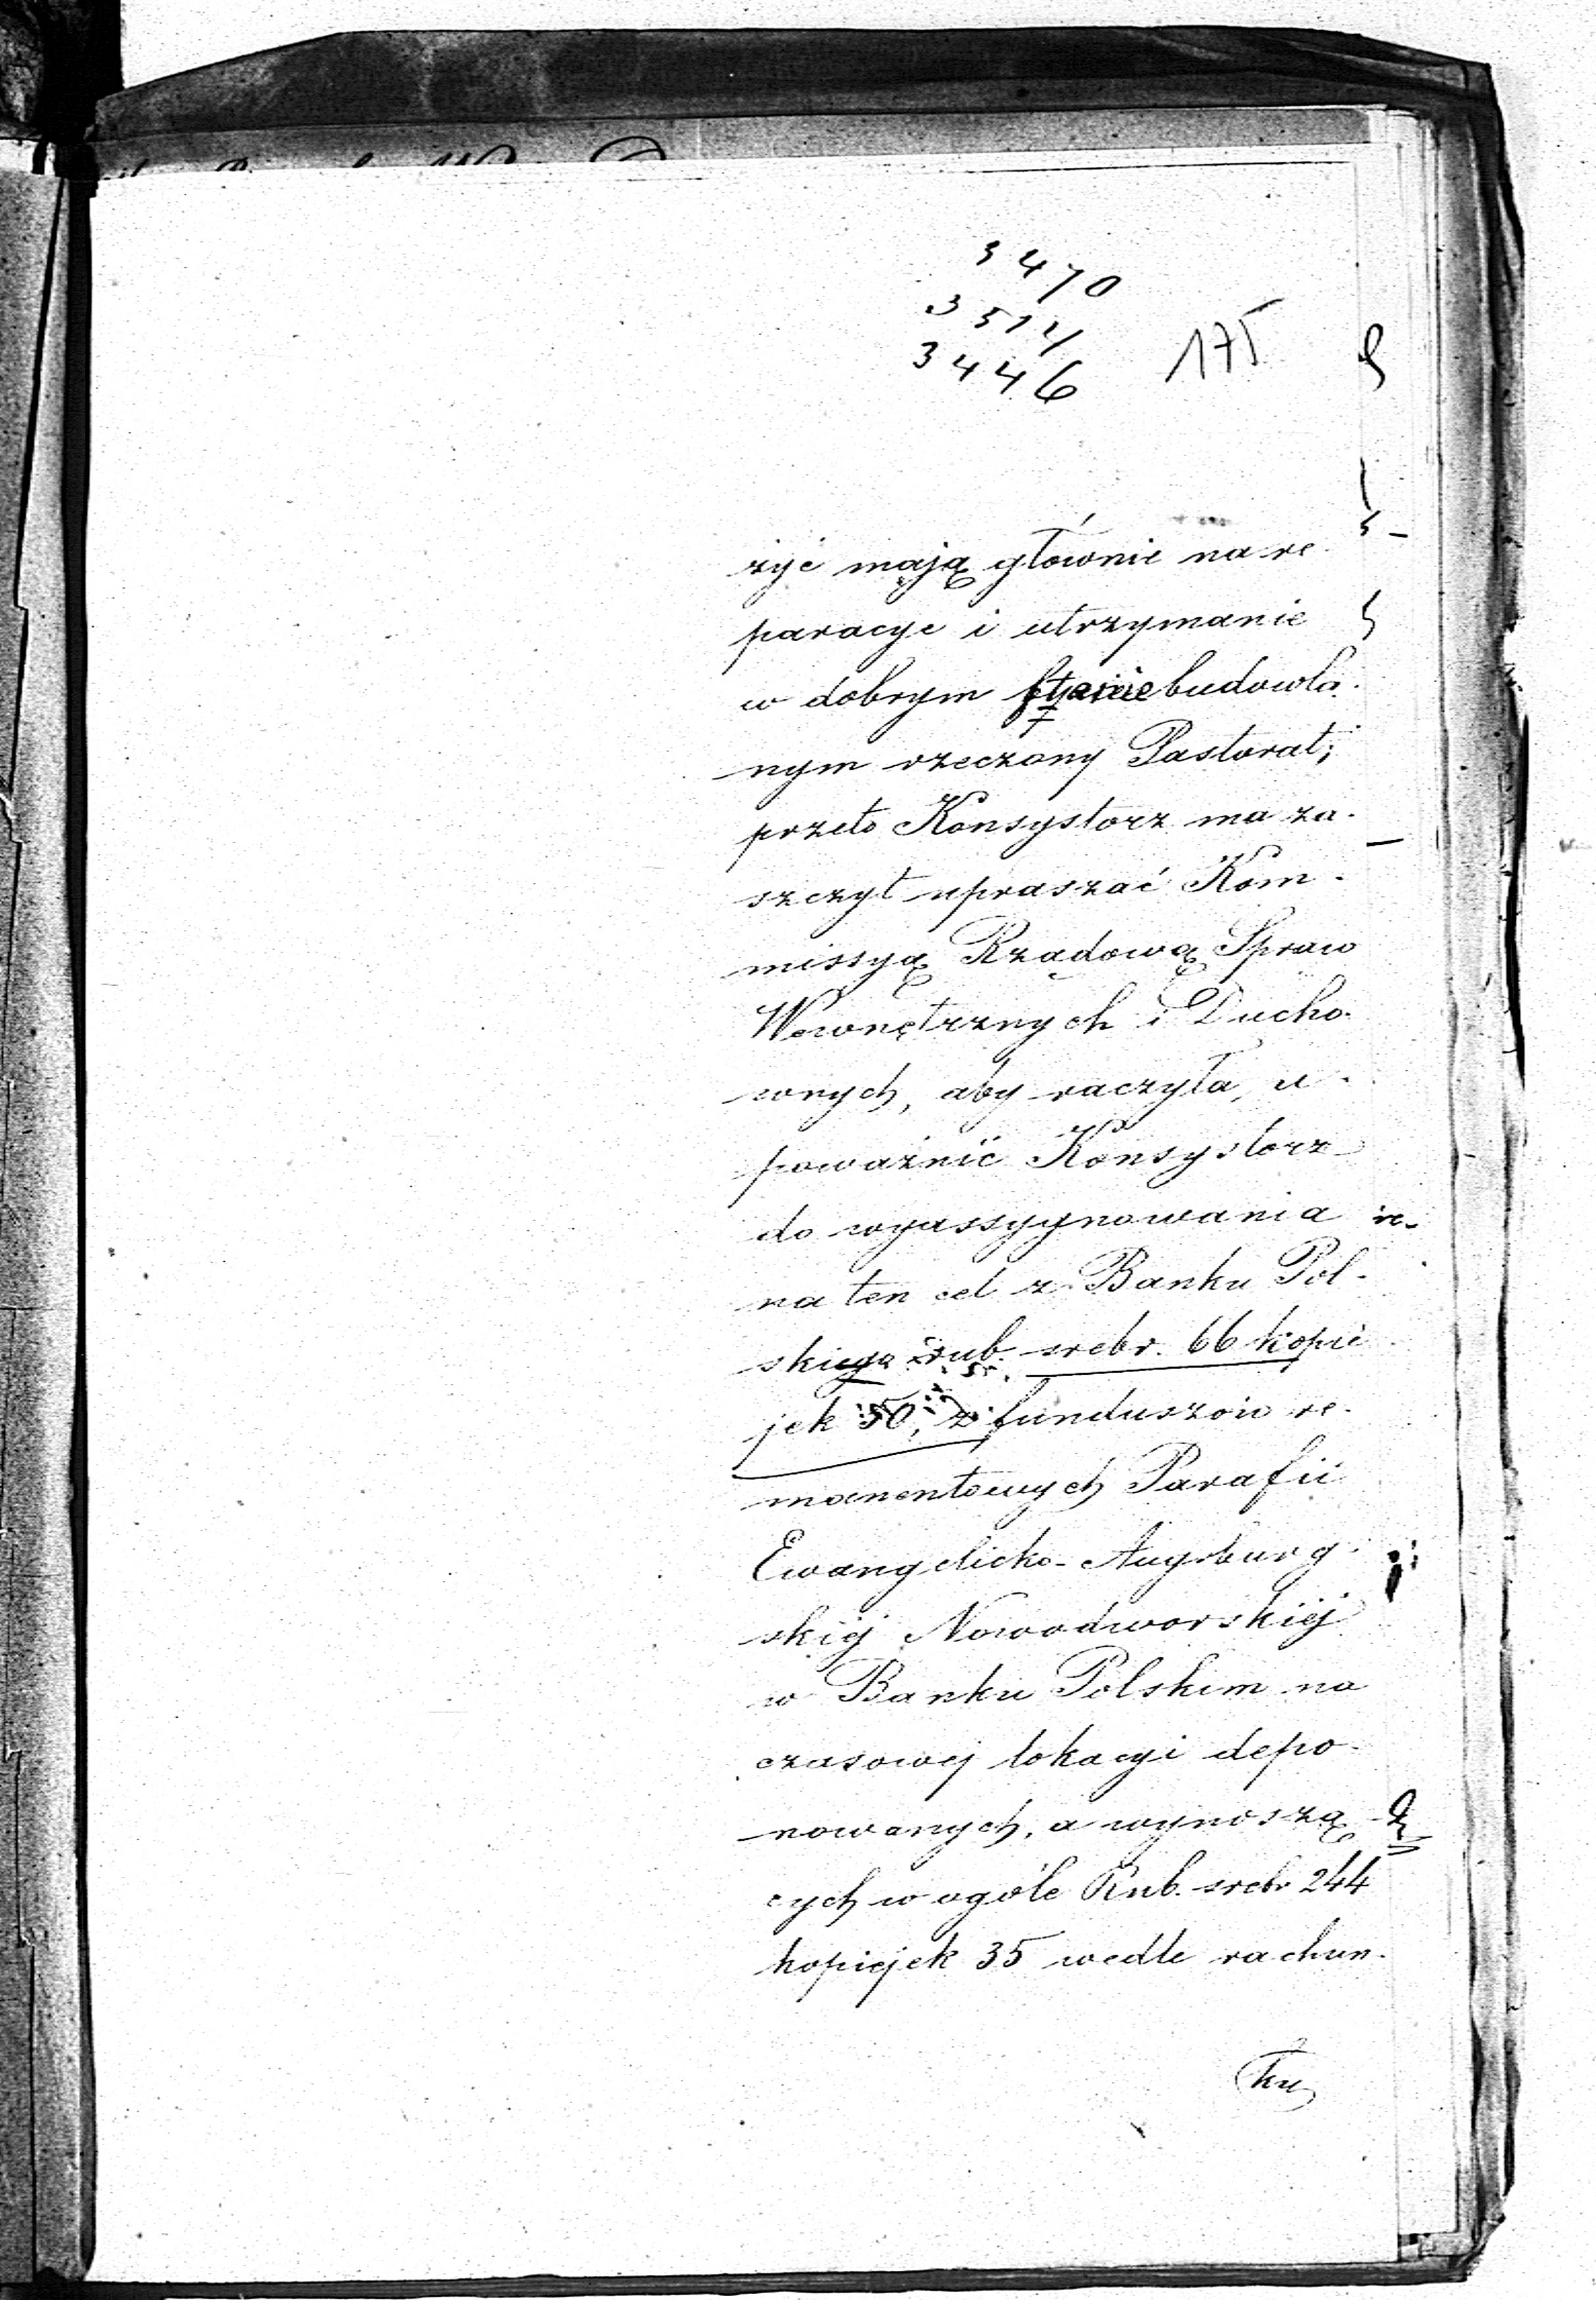 3470
3514
3446
175
żyć mają głównie na re-
paracye i utrzymanie
w dobrym stanie budowla-
nym rzeczony Pastorat;
przeto Konsystorz ma za-
szczyt upraszać Kom-
missyą Rządową Spraw
Wewnętrznych i Ducho-
wnych, aby raczyła, u-
poważnić Konsystorz
do wyassygnowania
na ten cel z Banku Pol-
skiego rub. srebr. 66 kopie
jek 50, z funduszów re-
manentowych Parafii
Ewangelicko-Augsburg-
skiéj Nowodworskiéj
w Banku Polskim na
czasowej lokacyi depo-
nowanych, a wynoszą-
cych w ogóle Rub. srebr 244
kopiejek 35 wedle rachun-
ku